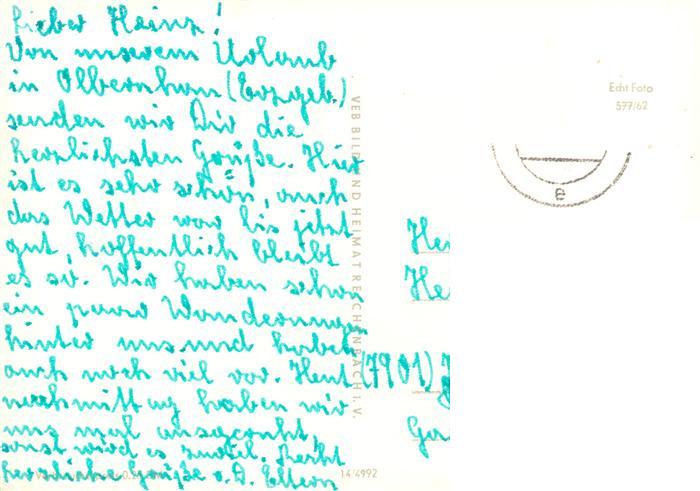 Lieber Heinz!
Von unserem Urlaub
in Olbernhau (Erzgeb.)
senden wir Dir die
herzlichsten Grüße. Hier
ist es sehr schön, auch
das Wetter war bis jetzt
gut, hoffentlich bleibt
es so. Wir haben schon
ein paar Wanderungen
hinter uns und haben
auch noch viel vor. Heut
nachmittag haben wir
uns mal ausgeruht,
sonst wird es zuviel. Recht
herzliche Grüße v. D. Eltern
VEB BILD UND HEIMAT REICHENBACH I. V.
14/4992
Echt Foto
577/62
e
(7901)